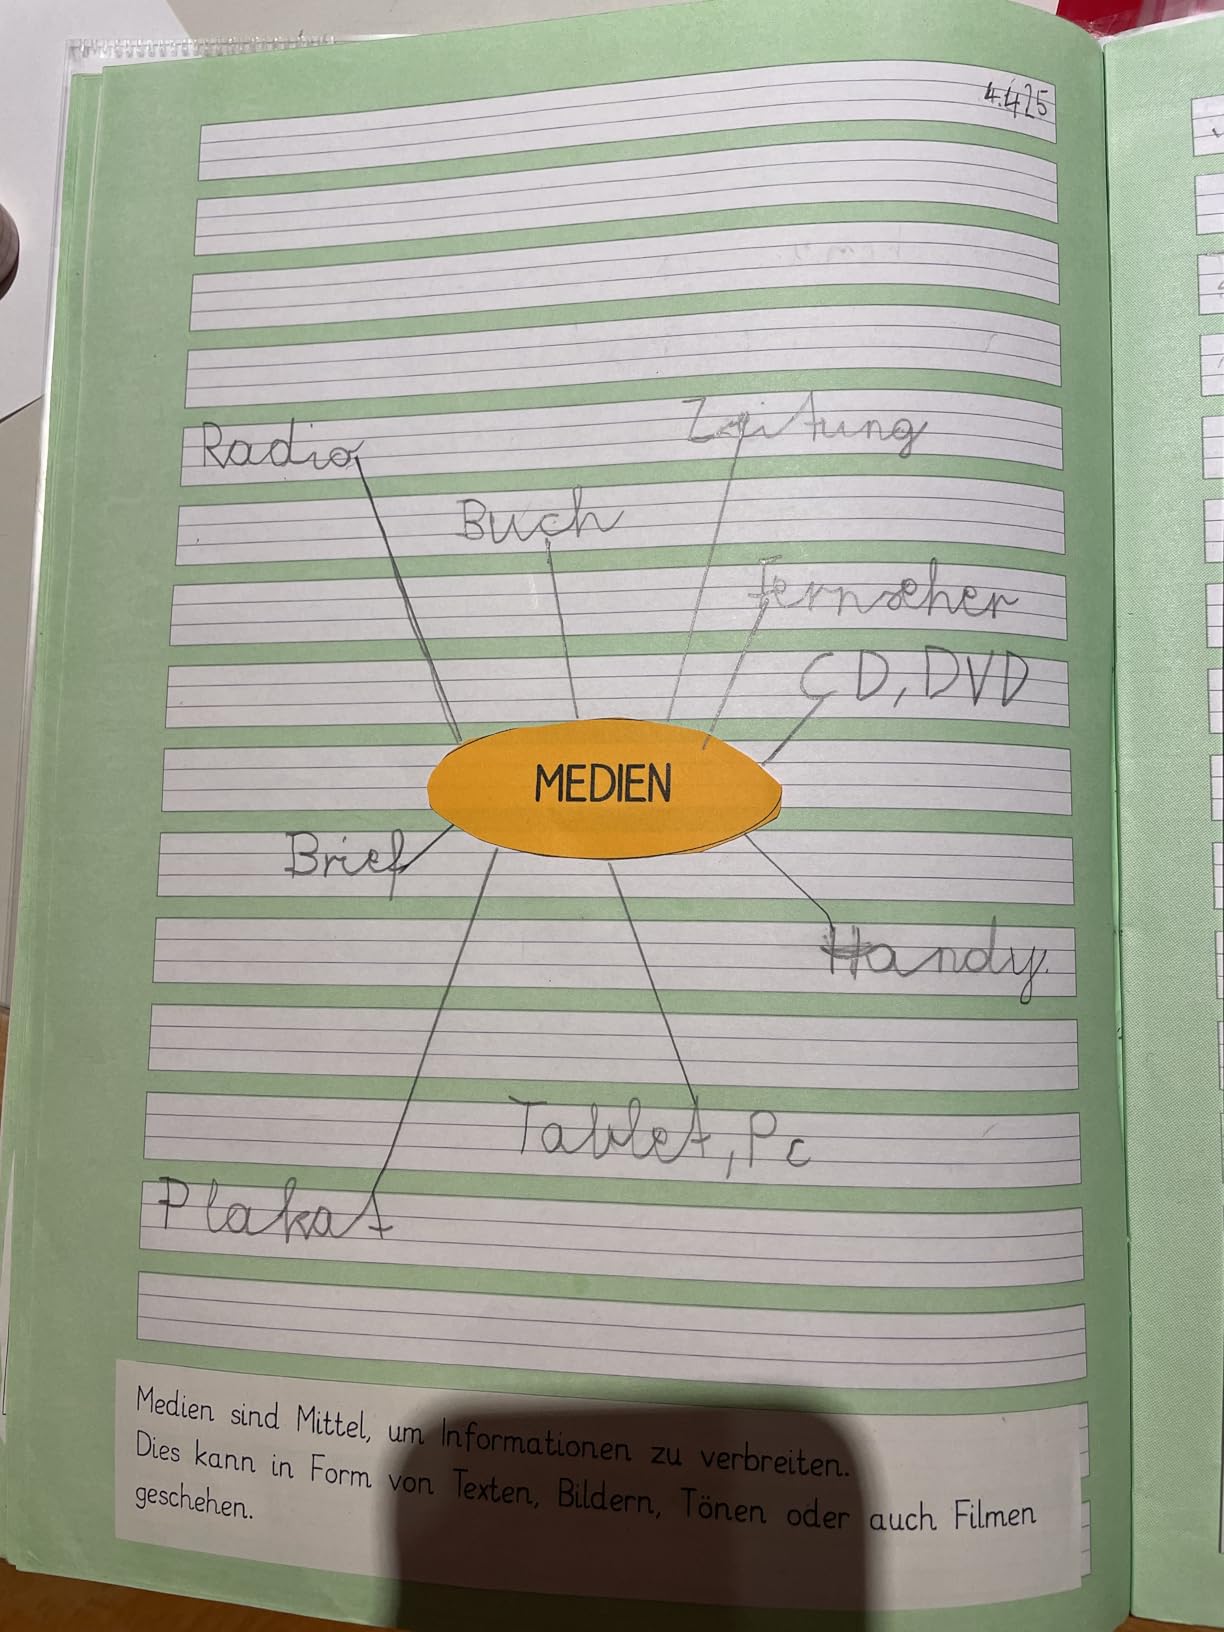 4.4.25
Radio
Zeitung
Buch
Fernseher
CD, DVD
MEDIEN
Brief
Handy
Tablet, Pc
Plakat
Medien sind Mittel, um Informationen zu verbreiten.
Dies kann in Form von Texten, Bildern, Tönen oder auch Filmen
geschehen.